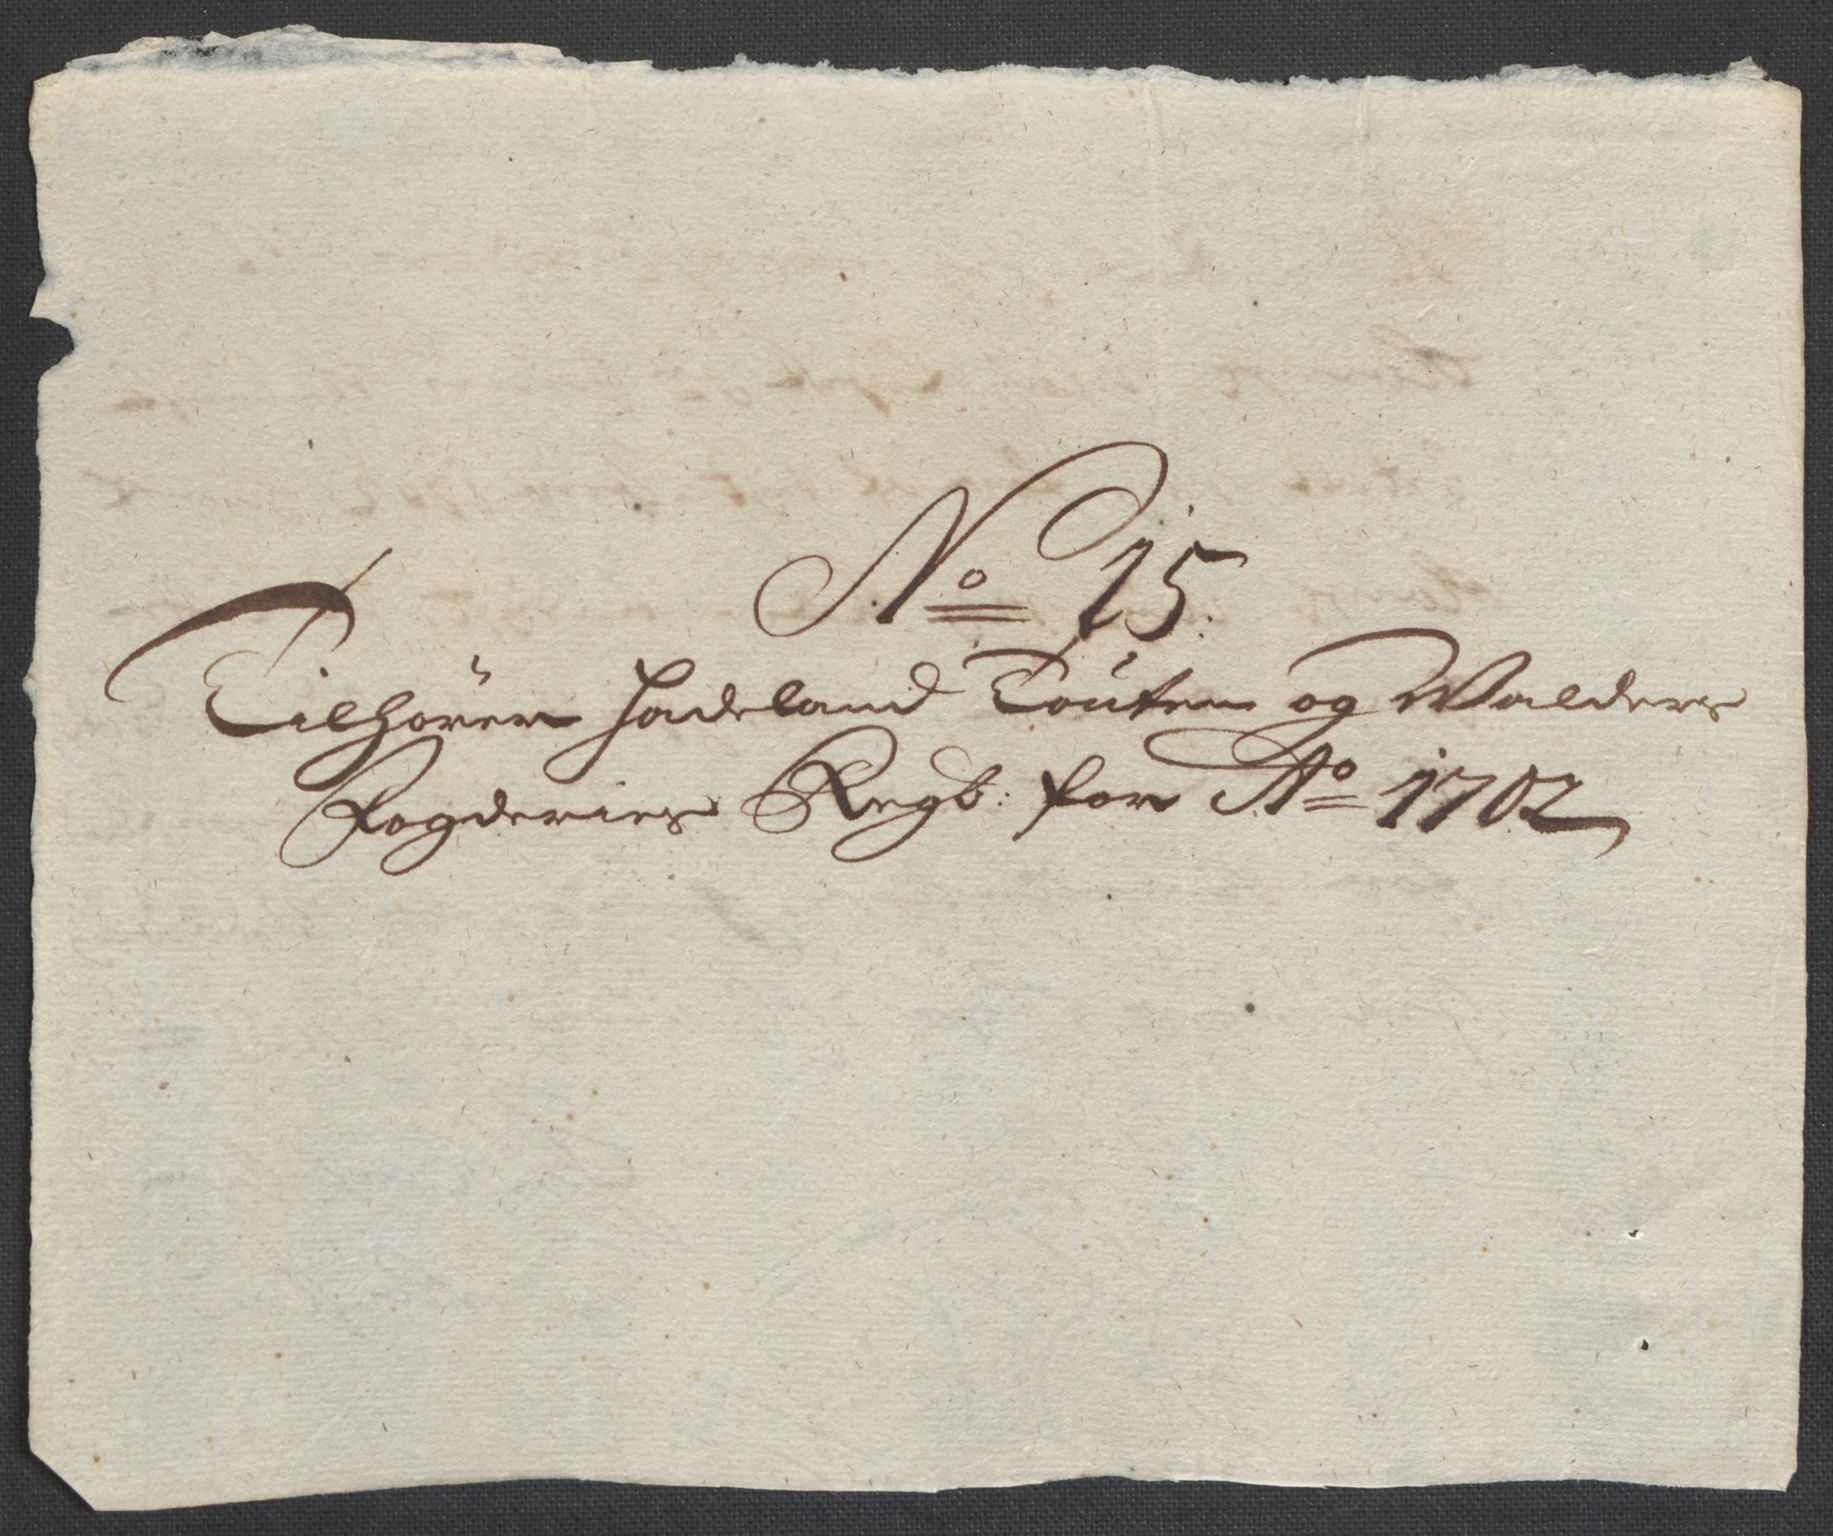 No 15.
Tilhører Hadeland Touten og Walders
Fogderies Regb: for Ao 1702